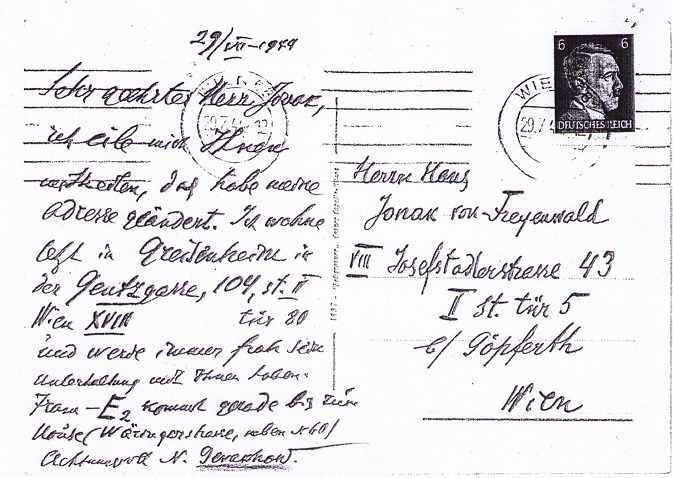 29/VII-1944
Sehr geehrter Herr Jonak,
ich eile mich Ihnen
mitteilen, das habe meine
Adresse geändert. Ich wohne
jetzt in Greisenheim in
der Gentzgasse, 104, st. II
Wien XVIII tür 80
und werde immer froh sein
Unterhaltung mit Ihnen haben.
Tram-E₂ kommt gerade bis zum
Hause (Währingerstrasse, neben
Achtungsvoll N.
WIEN
29.7.4
6 6
DEUTSCHES REICH
Herrn Hans
Jonak von Freyenwald
VIII Josefstadlerstrasse 43
II st. tür 5
b/ Göpferth
Wien